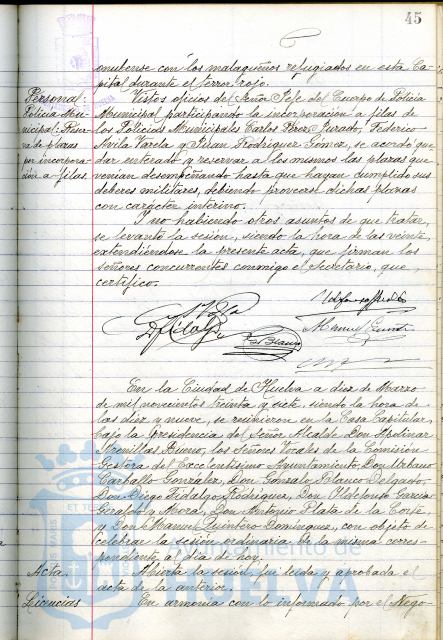 45
onubense con los malagueños refugiados en esta Ca-
pital durante el terror rojo.
Personal: Policía Mu-
nicipal: Reser-
va de plazas
por incorpora-
ción a filas
Vistos oficios del Señor Jefe del Cuerpo de Policía
Municipal participando la incorporación a filas de
los Policías Municipales Carlos Pérez Jurado, Federico
Avila Varela y Rodríguez Gómez, se acordó que-
dar enterado y reservar a los mismos las plazas que
venían desempeñando hasta que hayan cumplido sus
deberes militares, debiendo proveerse dichas plazas
con carácter interino.
Y no habiendo otros asuntos de que tratar,
se levantó la sesión, siendo la hora de las veinte,
extendiéndose la presente acta, que firman los
señores concurrentes conmigo el Secretario, que
certifico.
En la Ciudad de Huelva a diez de Marzo
de mil novecientos treinta y siete, siendo la hora de
las diez y nueve, se reunieron en la Casa Capitular,
bajo la Presidencia del Señor Alcalde Don Apolinar
Arenillas Bueno, los Señores Vocales de la Comisión
Gestora del Excelentísimo Ayuntamiento, Don Urbano
Carballo González, Don Gonzalo Blanco Delgado,
Don Diego Fidalgo Rodríguez, Don Ildefonso García
Mora, Don Antonio Plata de la Corte,
y Don Manuel Quintero Domínguez, con objeto de
celebrar la sesión ordinaria de la misma corres-
pondiente al día de hoy.
Acta.
Abierta la sesión, fué leída y aprobada el
acta de la anterior.
Licencias
En armonía con lo informado por el Nego-